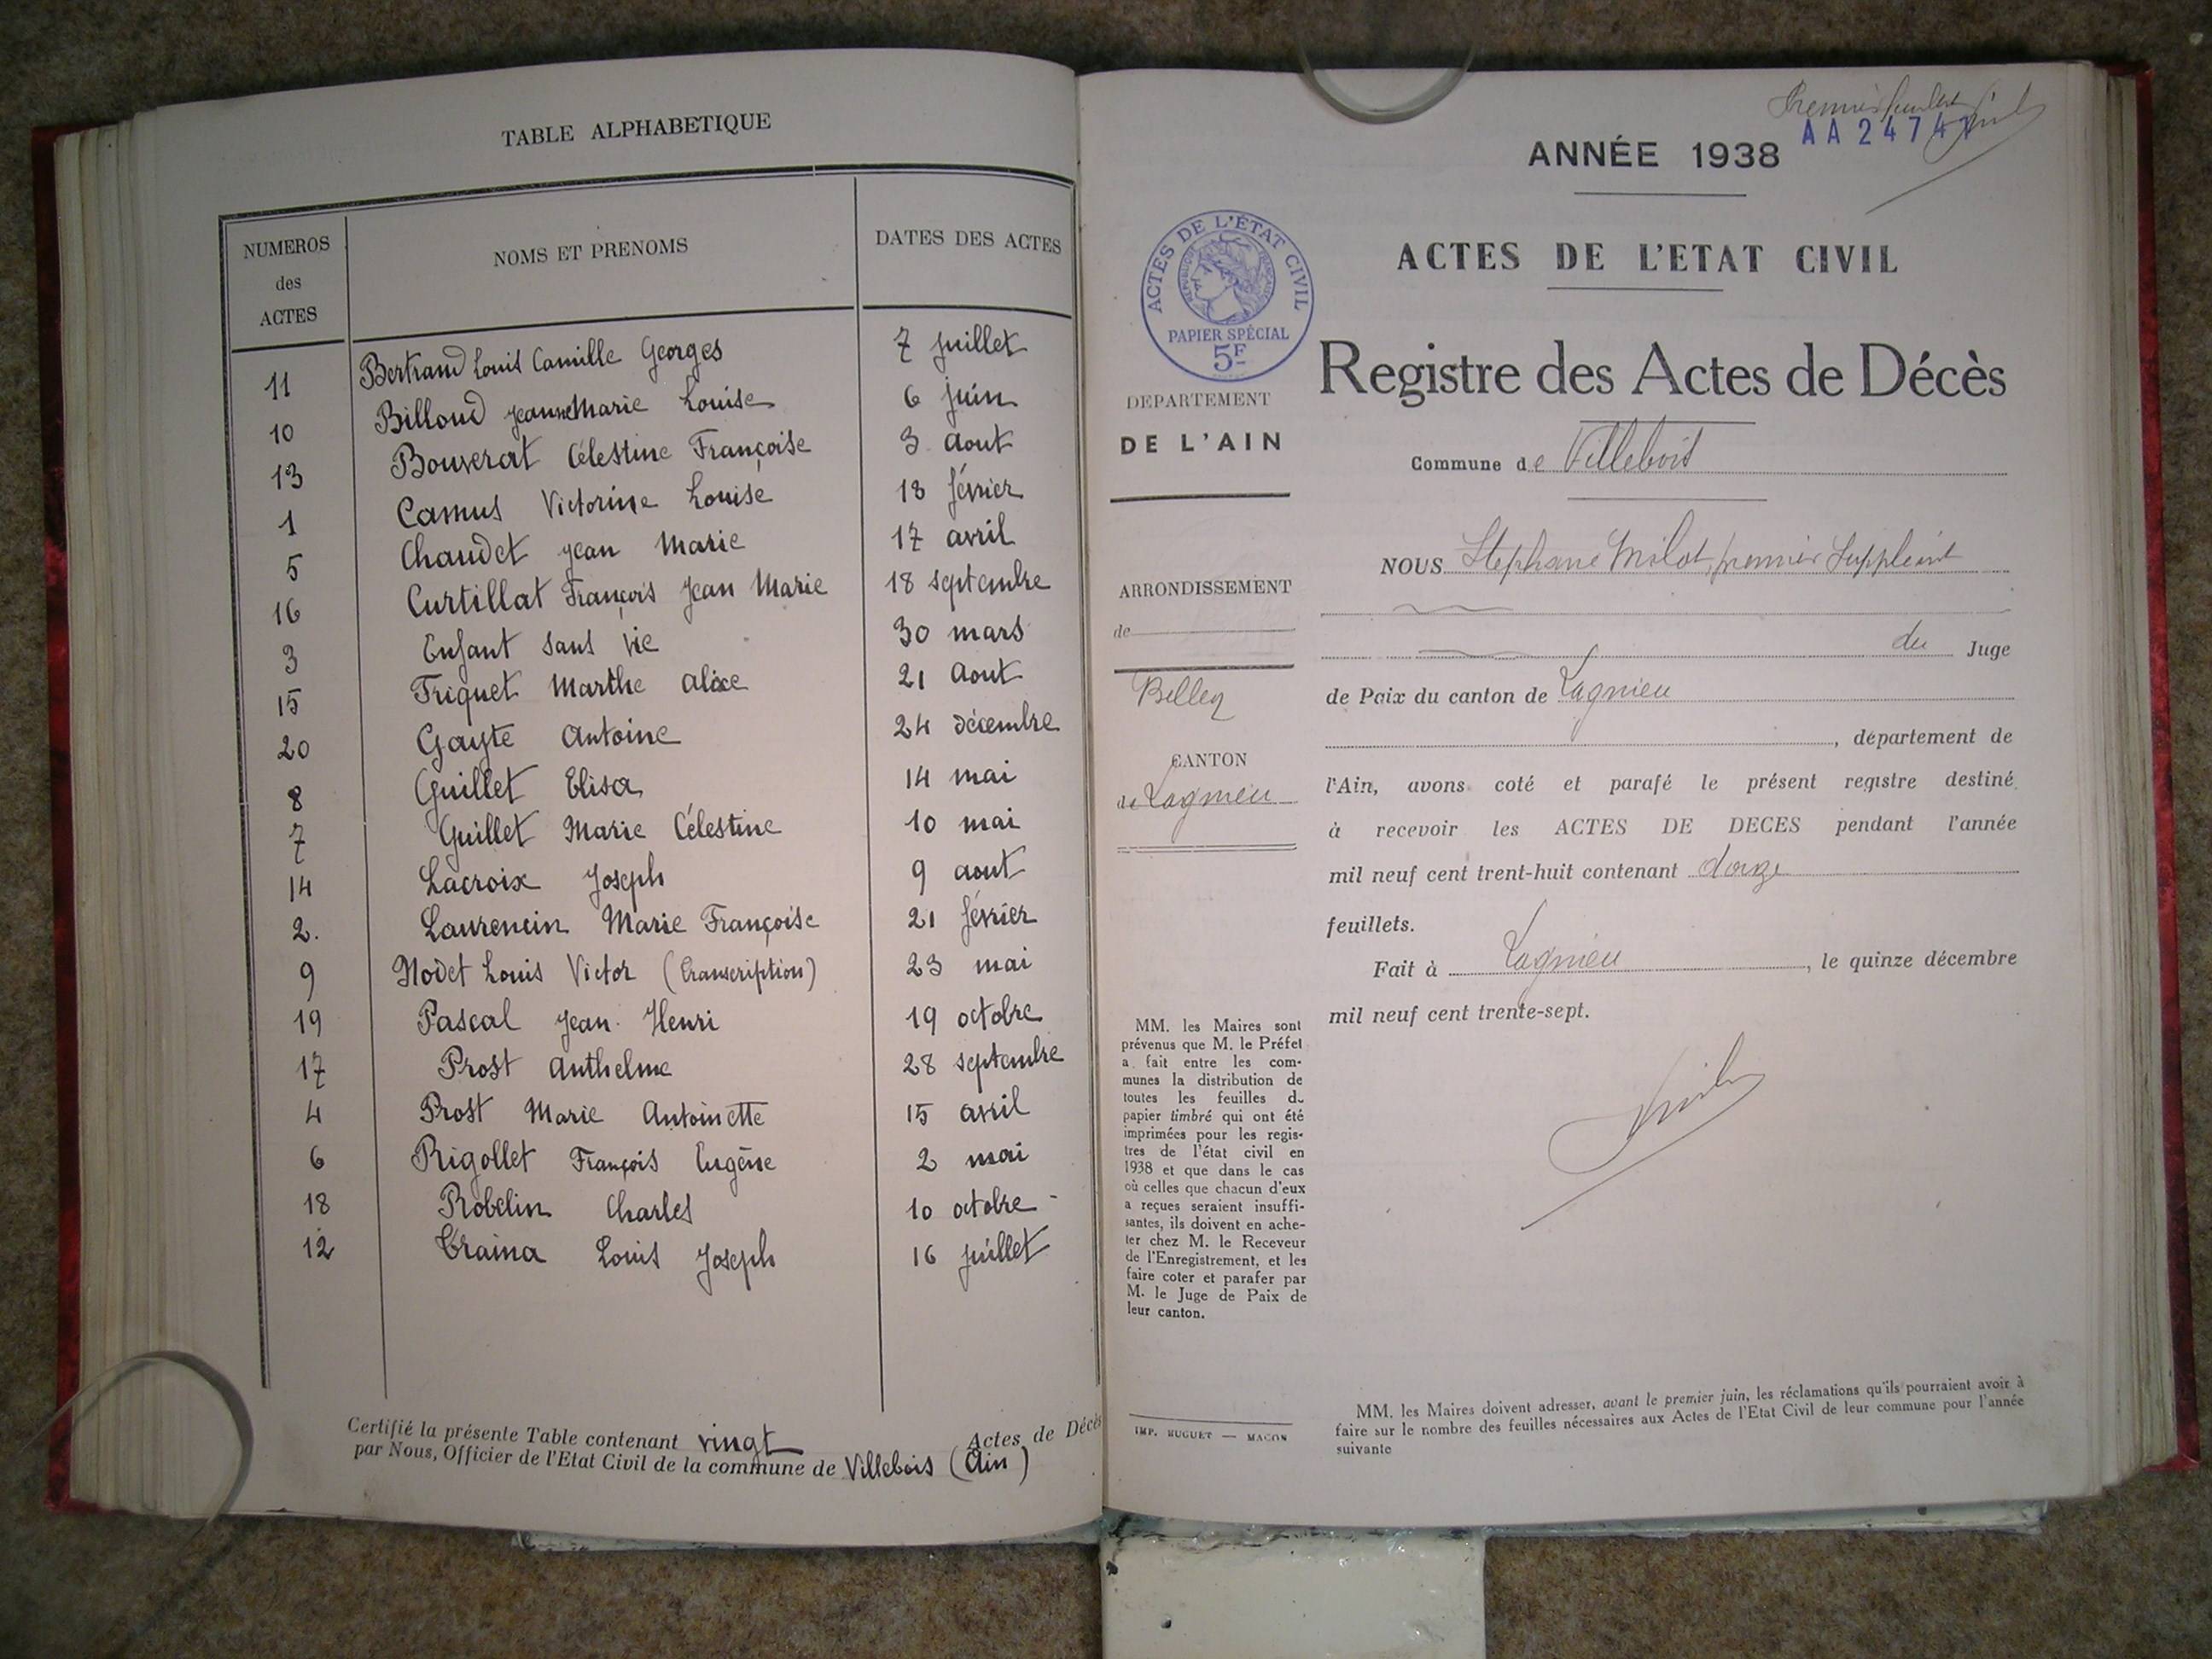 TABLE ALPHABETIQUE
NUMEROS des ACTES NOMS ET PRENOMS DATES DES ACTES
11 Bertrand Louis Camille Georges 7 juillet
10 Billoud Jeanne Marie Louise 6 juin
13 Bouverat Célestine Françoise 3 aout
1 Camus Victorine Louise 18 février
5 Chaudet Jean Marie 17 avril
16 Curtillat François Jean Marie 18 septembre
3 Enfant sans vie 30 mars
15 Friquet Marthe Alixe 21 Aout
20 Gayte Antoine 24 décembre
8 Guillet Elisa 14 mai
7 Guillet Marie Célestine 10 mai
14 Lacroix Joseph 9 aout
2. Laurencin Marie Françoise 21 février
9 Nodet Louis Victor (transcription) 23 mai
19 Pascal Jean Henri 19 octobre
17 Prost Anthelme 28 septembre
4 Prost Marie Antoinette 15 avril
6 Rigollet François Eugène 2 mai
18 Robelin Charles 10 octobre
12 Traina Louis Joseph 16 juillet
Certifié la présente Table contenant vingt Actes de Décès
par Nous, Officier de l'Etat Civil de la commune de Villebois (Ain)
Premier
AA 2474
ANNÉE 1938
ACTES DE L'ETAT CIVIL
ACTES DE L'ÉTAT CIVIL
REPUBLIQUE FRANÇAISE
PAPIER SPÉCIAL
5F
Registre des Actes de Décès
DEPARTEMENT
DE L'AIN
Commune de Villebois
NOUS Stephane Milot, premier Suppléant
du Juge
ARRONDISSEMENT
de
Belley
de Paix du canton de Lagnieu
, département de
CANTON
de Lagnieu
l'Ain, avons coté et parafé le présent registre destiné
à recevoir les ACTES DE DECES pendant l'année
mil neuf cent trent-huit contenant douze
feuillets.
Fait à Lagnieu, le quinze décembre
mil neuf cent trente-sept.
MM. les Maires sont
prévenus que M. le Préfet
a fait entre les com-
munes la distribution de
toutes les feuilles du
papier timbré qui ont été
imprimées pour les regis-
tres de l'état civil en
1938 et que dans le cas
où celles que chacun d'eux
a reçues seraient insuffi-
santes, ils doivent en ache-
ter chez M. le Receveur
de l'Enregistrement, et les
faire coter et parafer par
M. le Juge de Paix de
leur canton.
IMP. HUGUET — MACON
MM. les Maires doivent adresser, avant le premier juin, les réclamations qu'ils pourraient avoir à
faire sur le nombre des feuilles nécessaires aux Actes de l'Etat Civil de leur commune pour l'année
suivante